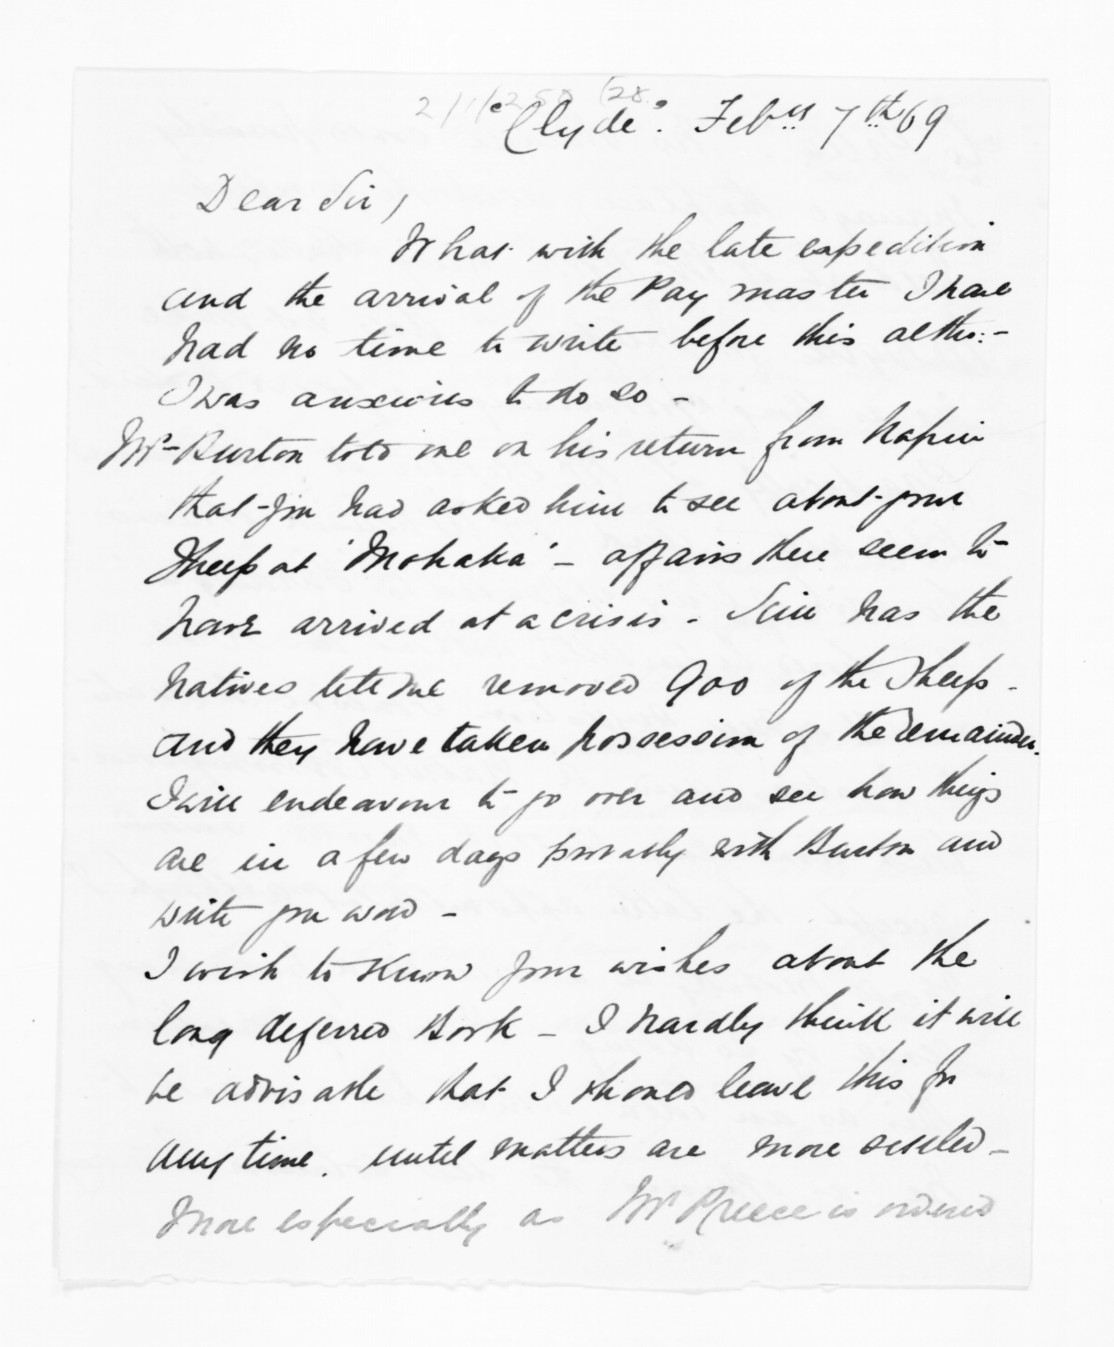 "Clyde". Feby 7th 69
Dear Sir,
What with the late expedition
and the arrival of the Pay master I have
had no time to write before this altho:-
I was anxious to do so -
Mr Burton told me on his return from Napier
that you had asked him to see about your
Sheep at 'Mohaka' - affairs there seem to
have arrived at a crisis - Sim has the
Natives tell me removed 900 of the Sheep -
and they have taken possession of the remainder.
I will endeavour to go over and see how things
are in a few days probably with Burton and
write you word -
I wish to know your wishes about the
long deferred Work - I hardly think it will
be advisable that I should leave this for
any time, until matters are more settled -
More especially as Mr Preece is ordered